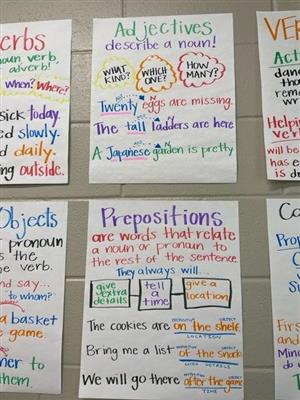 erbs
oun verb,
adverb!
When? Where?
sick today.
ed slowly.
d daily.
ing outside.
Adjectives
describe a noun!
WHAT KIND?
WHICH ONE?
HOW MANY?
Twenty eggs are missing.
The tall ladders are here
A Japanese garden is pretty
VE
Acti
Helping
will be
has e
is d
Objects
pronoun
s the
he verb.
nd say...
to whom?
a basket
e game.
ner to
them.
Prepositions
are words that relate
a noun or pronoun to
the rest of the sentence
They always will...
give extra details
tell a time
give a location
The cookies are on the shelf.
LOCATION
Bring me a list of the snacks
EXTRA DETAILS
We will go there after the game
TIME
Co